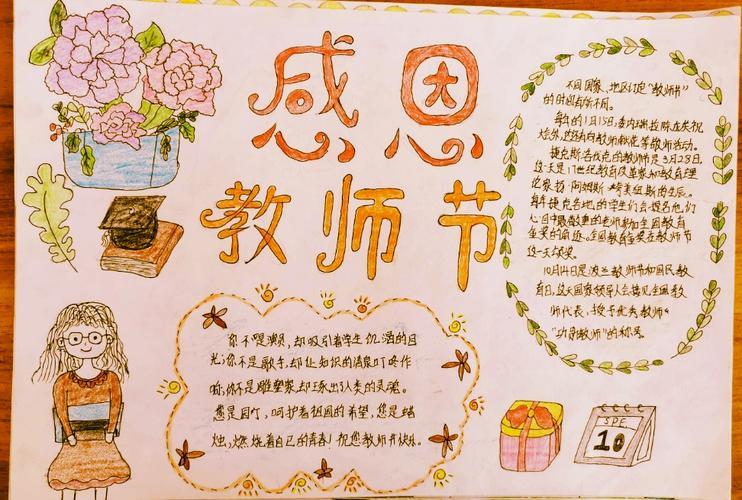 感恩
教师节
不同国家、地区订定“教师节”
的时间有所不同。
每年的1月15日,委内瑞拉除在庆祝
这天是17世纪教育改革家和教育理
论家扬·阿姆斯·夸美纽斯的生辰。
每年捷克各地的学生们会提名他们
心目中最敬重的老师参加全国教育
金奖的角逐。全国教育金奖在教师节
这一天颁奖。
10月14日是波兰教师节和国民教
育日,这天国家领导人会接见全国教
师代表,授予优秀教师
“功勋教师”的称号。
你不是演员,却吸引着学生饥渴的目
光;你不是歌手,却让知识的清泉叮咚作
响,你不是雕塑家,却琢出人类的灵魂。
您是园丁,呵护着祖国的希望,您是蜡
烛,燃烧着自己的青春!祝您教师节快乐.
SPE
10